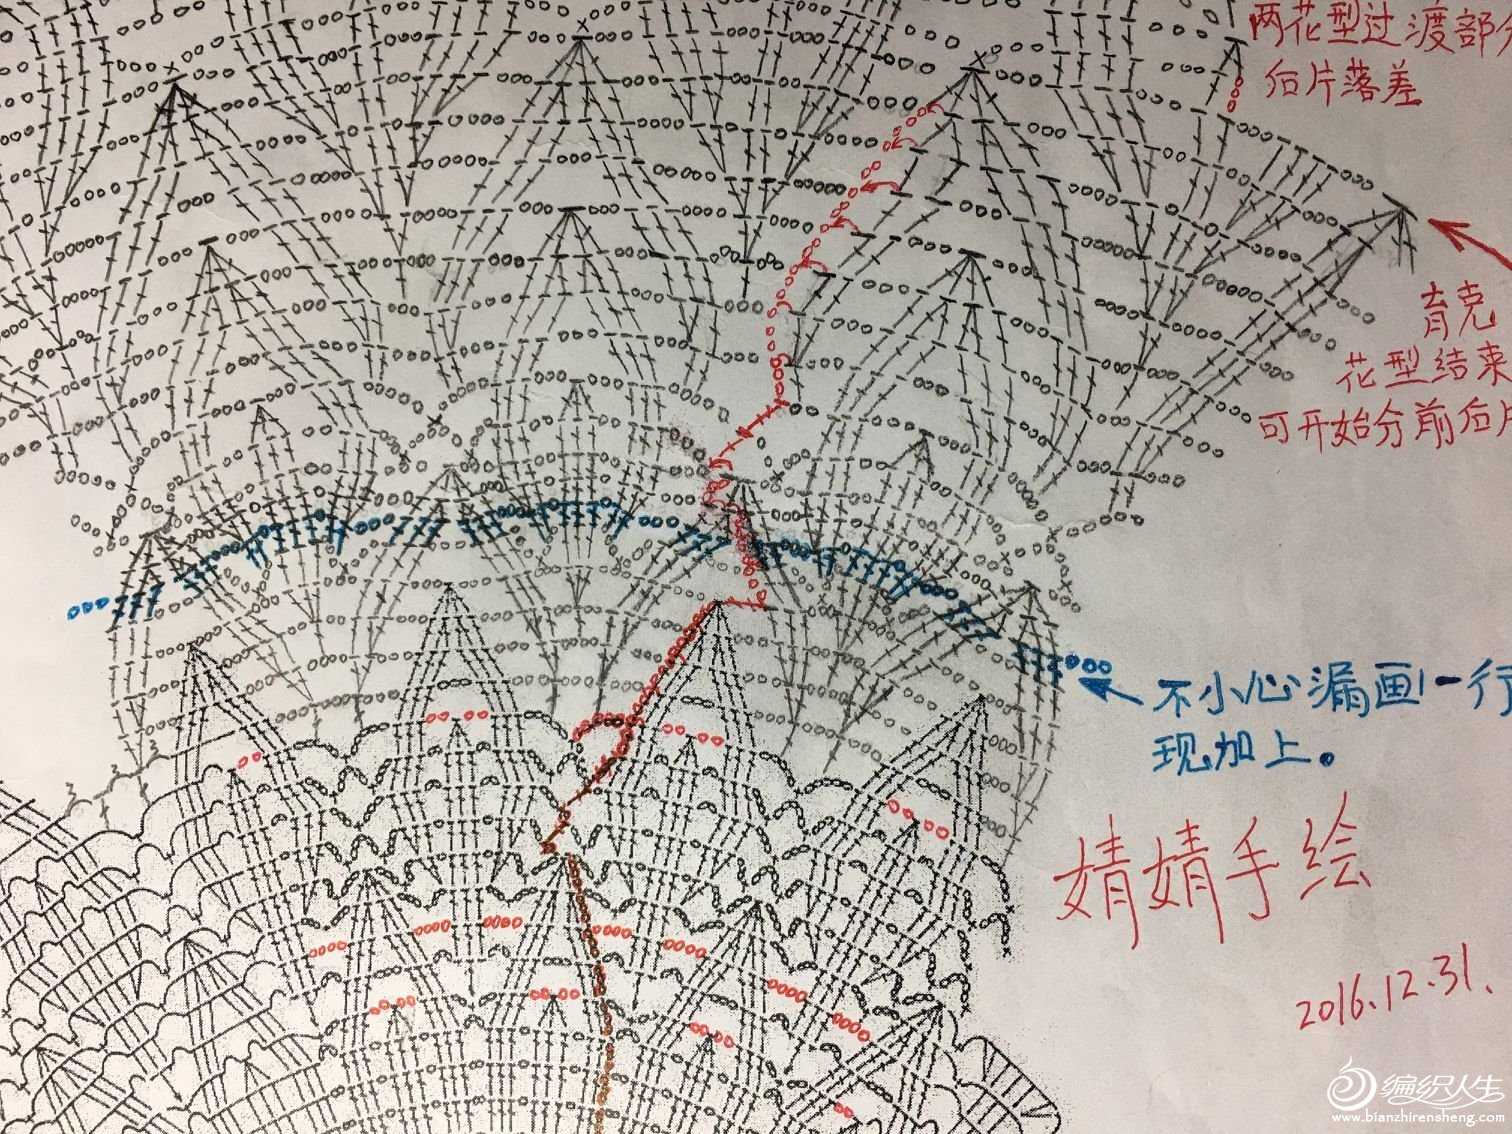 两花型过渡部分
后片落差
育克
花型结束
可开始分前后片
不小心漏画一行
现加上。
婧婧手绘
2016.12.31.
编织人生
www.bianzhirensheng.com